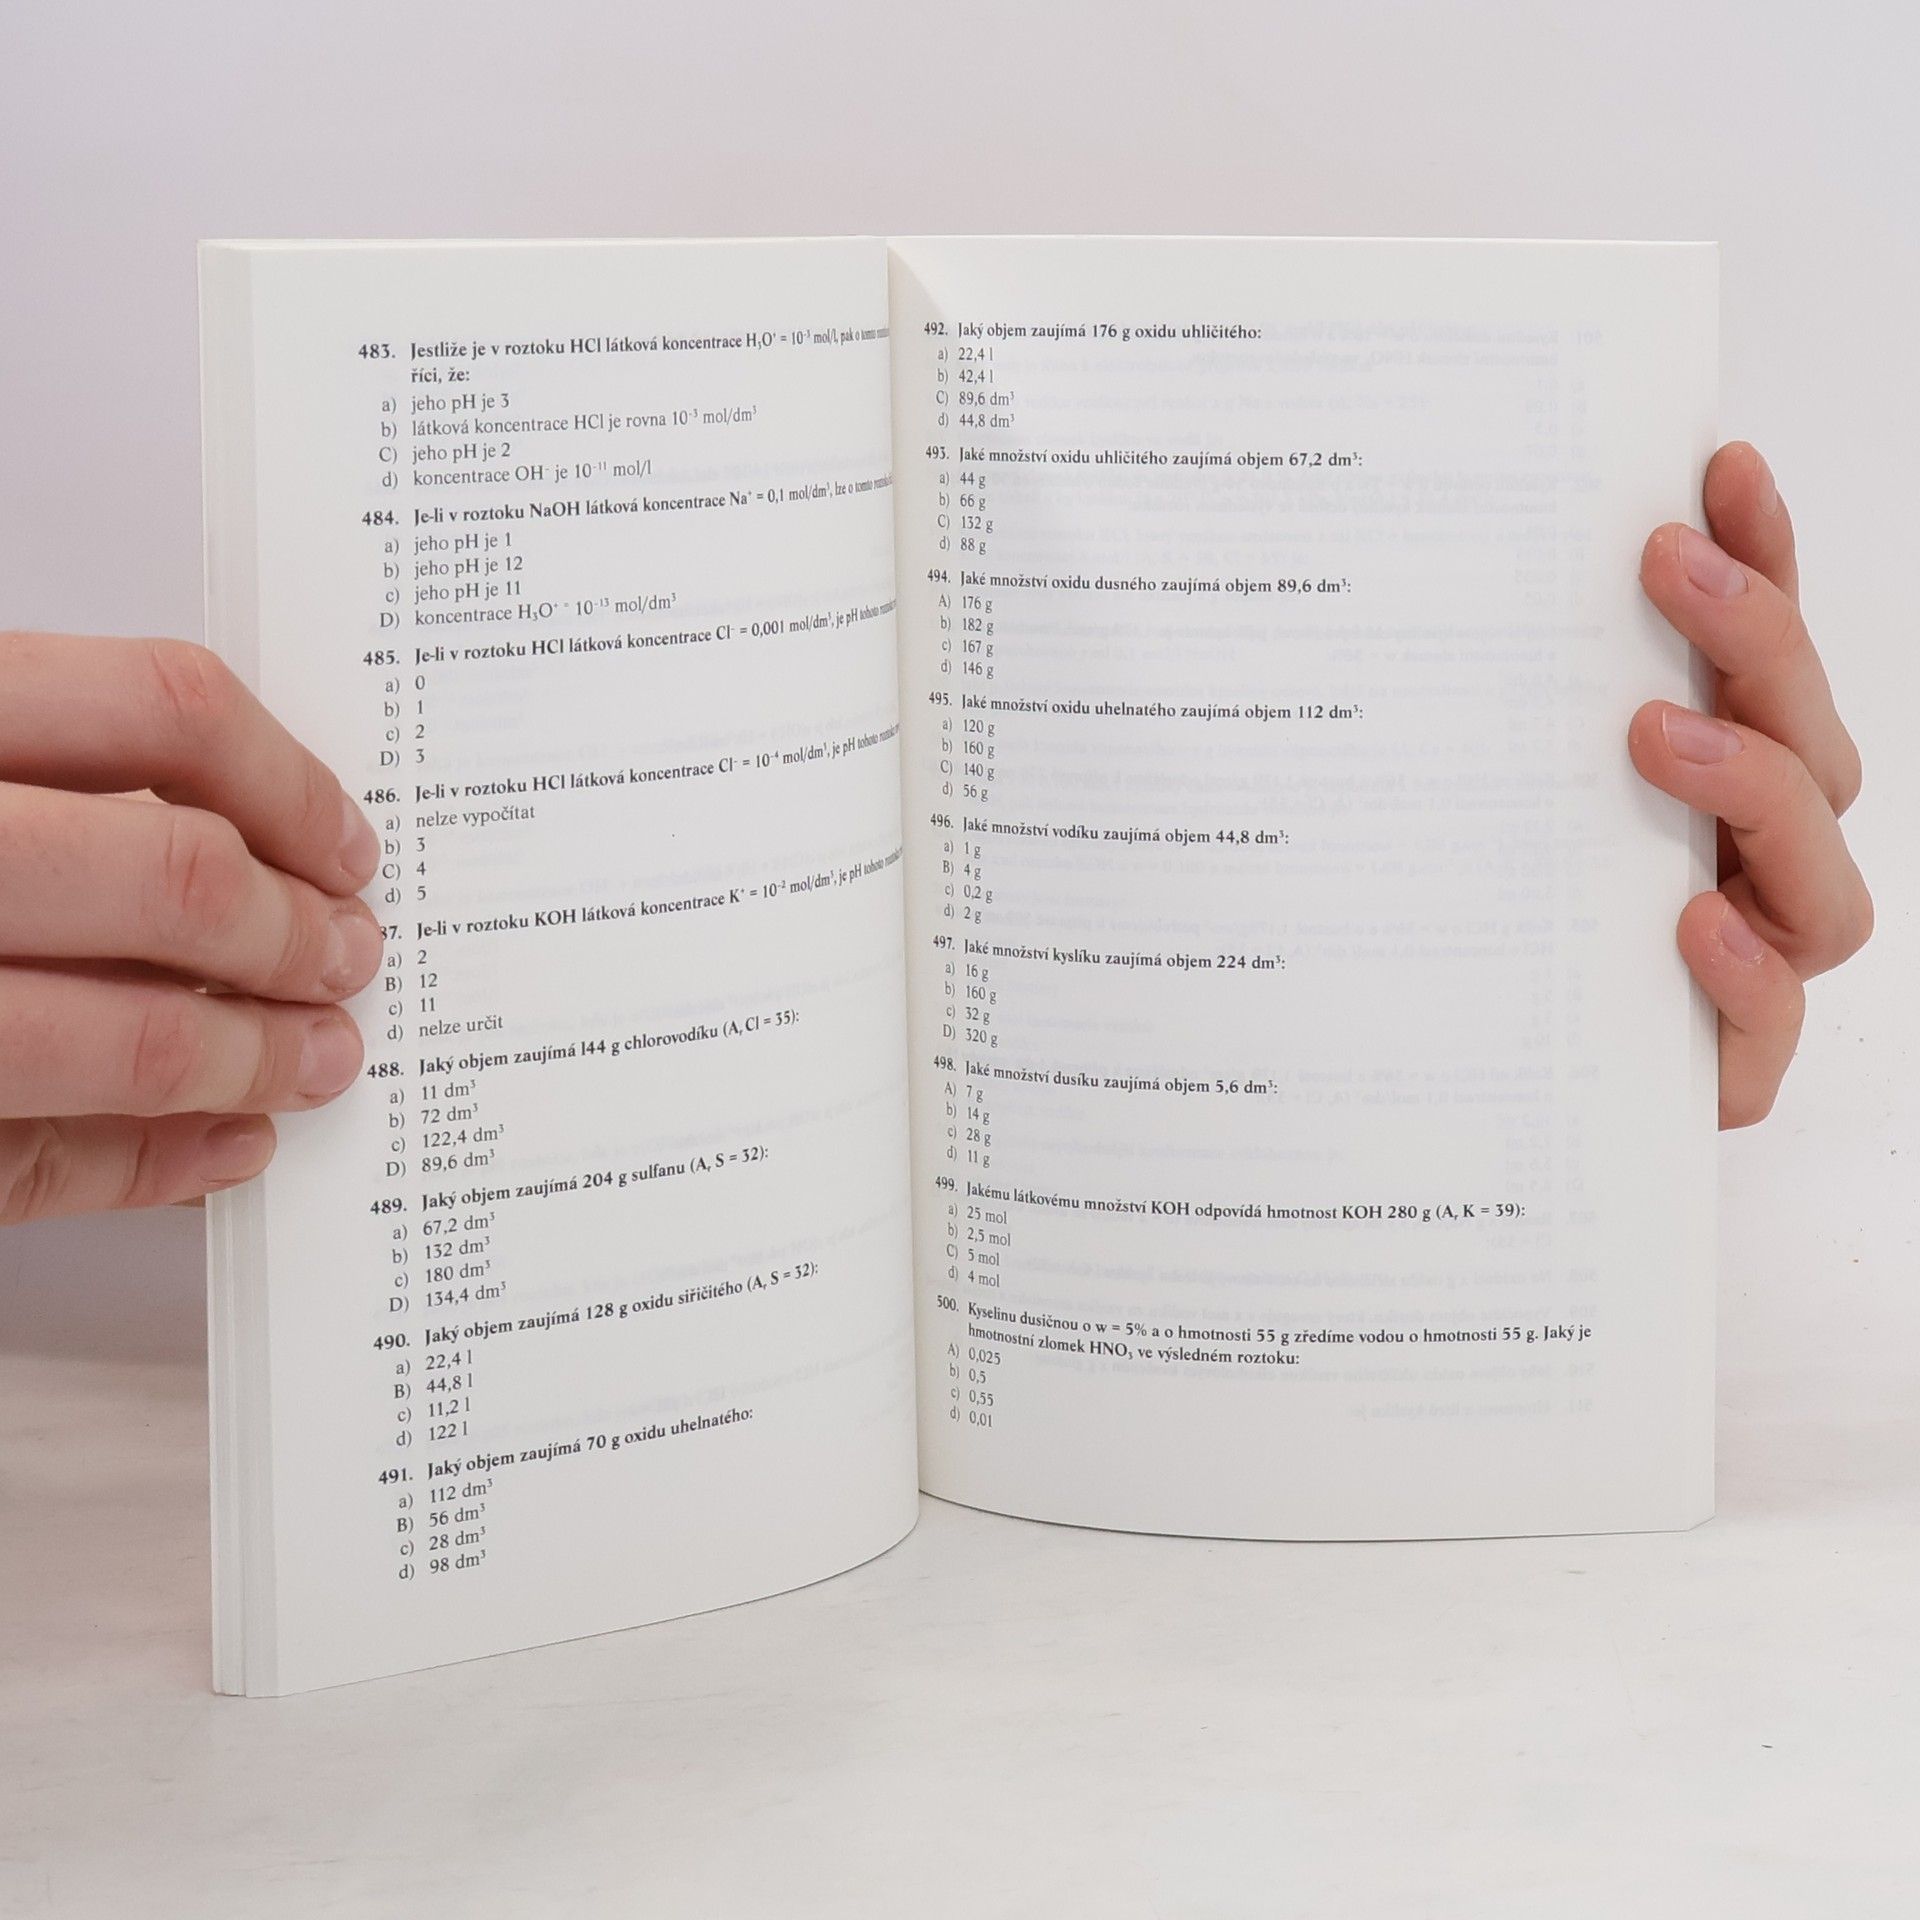 483. Jestliže je v roztoku HCl látková koncentrace H₃O⁺ = 10⁻³ mol/l, pak o tomto
říci, že:
a) jeho pH je 3
b) látková koncentrace HCl je rovna 10⁻³ mol/dm³
C) jeho pH je 2
d) koncentrace OH⁻ je 10⁻¹¹ mol/l
484. Je-li v roztoku NaOH látková koncentrace Na⁺ = 0,1 mol/dm³, lze o tomto
a) jeho pH je 1
b) jeho pH je 12
c) jeho pH je 11
D) koncentrace H₃O⁺ = 10⁻¹³ mol/dm³
485. Je-li v roztoku HCl látková koncentrace Cl⁻ = 0,001 mol/dm³, je pH tohoto
a) 0
b) 1
c) 2
D) 3
486. Je-li v roztoku HCl látková koncentrace Cl⁻ = 10⁻⁴ mol/dm³, je pH tohoto
a) nelze vypočítat
b) 3
C) 4
d) 5
87. Je-li v roztoku KOH látková koncentrace K⁺ = 10⁻² mol/dm³, je pH tohoto
a) 2
B) 12
c) 11
d) nelze určit
488. Jaký objem zaujímá 144 g chlorovodíku (Aᵣ Cl = 35):
a) 11 dm³
b) 72 dm³
c) 122,4 dm³
D) 89,6 dm³
489. Jaký objem zaujímá 204 g sulfanu (Aᵣ S = 32):
a) 67,2 dm³
b) 132 dm³
c) 180 dm³
D) 134,4 dm³
490. Jaký objem zaujímá 128 g oxidu siřičitého (Aᵣ S = 32):
a) 22,4 l
B) 44,8 l
c) 11,2 l
d) 122 l
491. Jaký objem zaujímá 70 g oxidu uhelnatého:
a) 112 dm³
B) 56 dm³
c) 28 dm³
d) 98 dm³
492. Jaký objem zaujímá 176 g oxidu uhličitého:
a) 22,4 l
b) 42,4 l
C) 89,6 dm³
d) 44,8 dm³
493. Jaké množství oxidu uhličitého zaujímá objem 67,2 dm³:
a) 44 g
b) 66 g
C) 132 g
d) 88 g
494. Jaké množství oxidu dusného zaujímá objem 89,6 dm³:
A) 176 g
b) 182 g
c) 167 g
d) 146 g
495. Jaké množství oxidu uhelnatého zaujímá objem 112 dm³:
a) 120 g
b) 160 g
C) 140 g
d) 56 g
496. Jaké množství vodíku zaujímá objem 44,8 dm³:
a) 1 g
B) 4 g
c) 0,2 g
d) 2 g
497. Jaké množství kyslíku zaujímá objem 224 dm³:
a) 16 g
b) 160 g
c) 32 g
D) 320 g
498. Jaké množství dusíku zaujímá objem 5,6 dm³:
A) 7 g
b) 14 g
c) 28 g
d) 11 g
499. Jakému látkovému množství KOH odpovídá hmotnost KOH 280 g (Aᵣ K = 39):
a) 25 mol
b) 2,5 mol
C) 5 mol
d) 4 mol
500. Kyselinu dusičnou o w = 5% a o hmotnosti 55 g zředíme vodou o hmotnosti 55 g. Jaký je
hmotnostní zlomek HNO₃ ve výsledném roztoku:
A) 0,025
b) 0,5
c) 0,55
d) 0,01